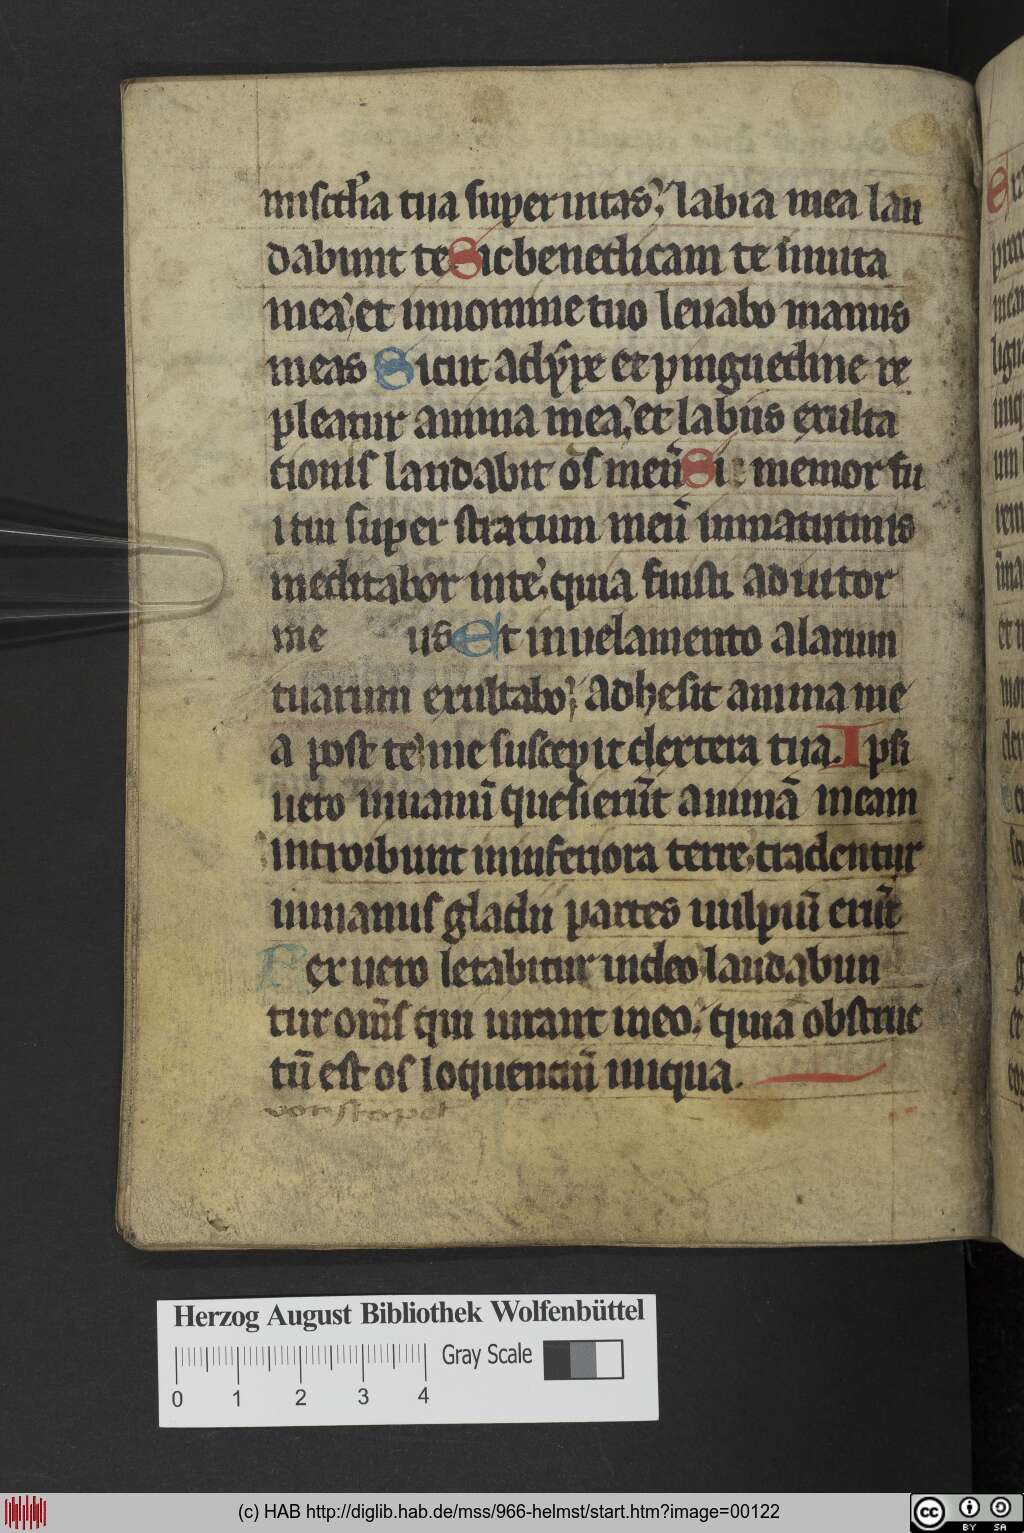 miscd'ia tua super uitas, labia mea lau
dabunt te Sic benedicam te in uita
mea, et in nomine tuo leuabo manus
meas Sicut adype et pinguedine re
pleatur anima mea, et labiis exulta
tionis laudabit os meū Si memor fu
i tui super stratum meū in matutinis
meditabor in te, quia fuisti adiutor
me us Et in uelamento alarum
tuarum exultabo, adhesit anima me
a post te me suscepit dextera tua. Ipsi
uero in uanū quesierūt animā meam
introibunt in inferiora terre, tradentur
in manus gladii partes uulpiū erūt
Rex uero letabitur in deo laudabun
tur om̄s qui iurant in eo, quia obstruc
tū est os loquentiū iniqua.
vorstopet
Herzog August Bibliothek Wolfenbüttel
Gray Scale
0 1 2 3 4
(c) HAB http://diglib.hab.de/mss/966-helmst/start.htm?image=00122
cc BY SA